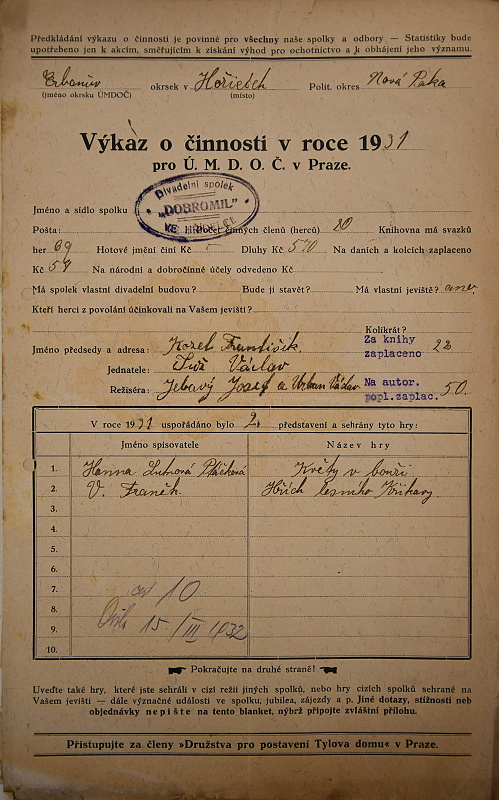 Předkládání výkazu o činnosti je povinné pro všechny naše spolky a odbory — Statistiky bude
upotřebeno jen k akcím, směřujícím k získání výhod pro ochotnictvo a k obhájení jeho významu.
Erbenův okrsek v Hořicích Polit. okres Nová Paka
(jméno okrsku ÚMDOČ) (místo)
Výkaz o činnosti v roce 1931
pro Ú. M. D. O. Č. v Praze.
Divadelní spolek
Jméno a sídlo spolku „DOBROMIL"
Pošta: VE počet činných členů (herců) 80 Knihovna má svazků
her 69 Hotové jmění činí Kč Dluhy Kč 570 Na daních a kolcích zaplaceno
Kč 54 Na národní a dobročinné účely odvedeno Kč
Má spolek vlastní divadelní budovu? Bude ji stavět? Má vlastní jeviště? ano.
Kteří herci z povolání účinkovali na Vašem jevišti?
Kolikrát?
Jméno předsedy a adresa: Kozel František. Za knihy zaplaceno 22
Jednatele: Václav
Režiséra: Jebavý Josef a Urban Václav Na autor. popl. zaplac. 50.
V roce 1931 uspořádáno bylo 2. představení a sehrány tyto hry:
Jméno spisovatele Název hry
1. Květy v bouři
2. V. Hřích lesního
3.
4.
5.
6.
7. 10
8.
9. 15. /III 1932
10.
Pokračujte na druhé straně!
Uveďte také hry, které jste sehráli v cizí režii jiných spolků, nebo hry cizích spolků sehrané na
Vašem jevišti — dále význačné události ve spolku, jubilea, zájezdy a p. Jiné dotazy, stížnosti neb
objednávky nepište na tento blanket, nýbrž připojte zvláštní přílohu.
Přistupujte za členy »Družstva pro postavení Tylova domu« v Praze.